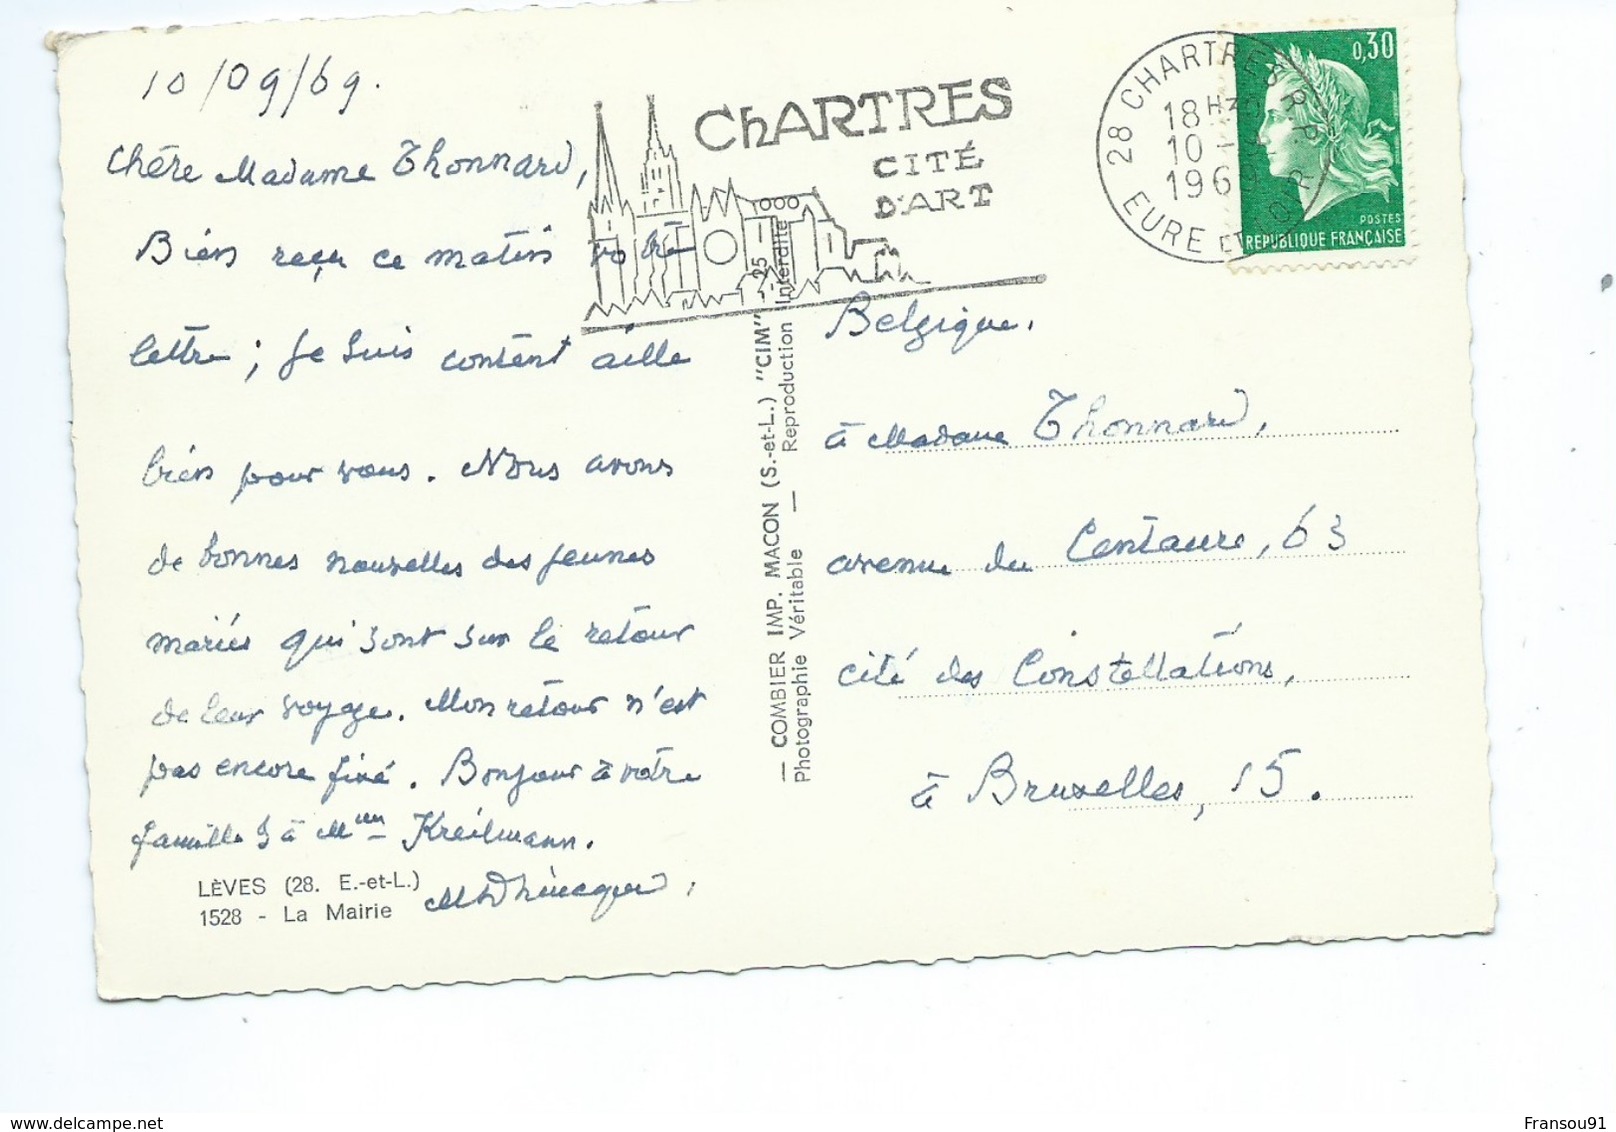 10/09/69.
Chère Madame Thonnard,
Bien reçu ce matin votre
lettre ; je suis content aille
bien pour vous. Nous avons
de bonnes nouvelles des jeunes
mariés qui sont sur le retour
de leur voyage. Mon retour n'est
pas encore fixé. Bonjour à votre
famille & à Mme Kreilmann.
LÈVES (28. E.-et-L.)
1528 - La Mairie
CHARTRES
CITÉ
D'ART
— COMBIER IMP. MACON (S.-et-L.) "CIM"
Photographie Véritable — Reproduction Interdite
28 CHARTRES R.P.
EURE ET LOIR
18H30
10 -
1969
0,30
POSTES
REPUBLIQUE FRANÇAISE
Belgique.
à Madame Thonnard,
avenue du Centaure, 63
cité des Constellations,
à Bruxelles, 15.
Fransou91